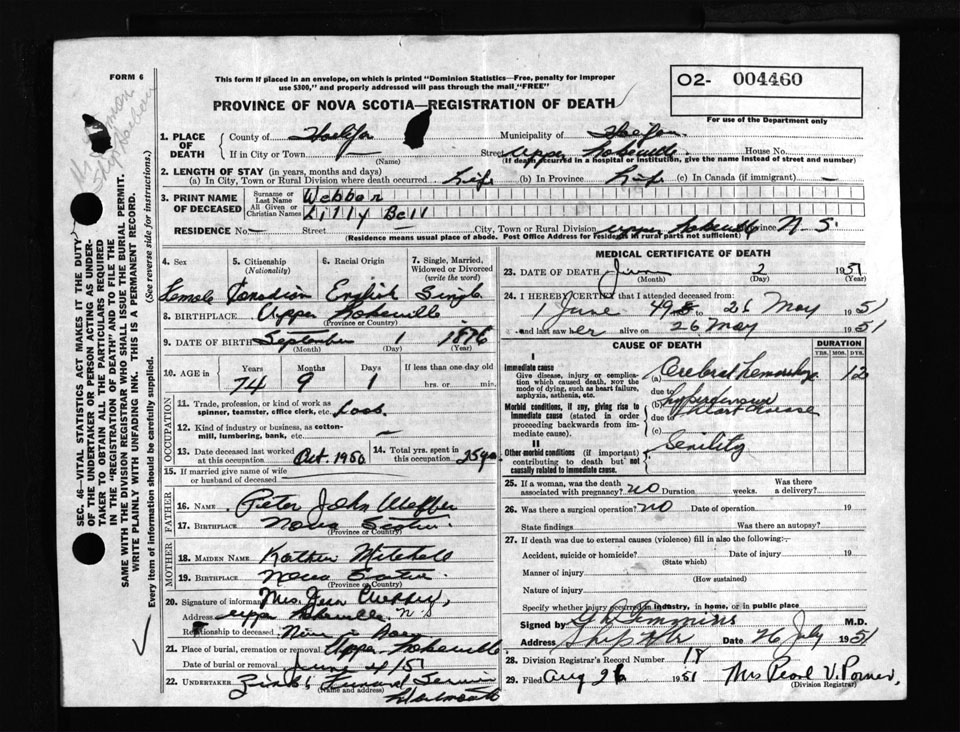 FORM 6
This form if placed in an envelope, on which is printed "Dominion Statistics—Free, penalty for improper
use $300," and properly addressed will pass through the mail "FREE"
O2- 004460
For use of the Department only
PROVINCE OF NOVA SCOTIA—REGISTRATION OF DEATH
SEC. 46—VITAL STATISTICS ACT MAKES IT THE DUTY
OF THE UNDERTAKER OR PERSON ACTING AS UNDER-
TAKER TO OBTAIN ALL THE PARTICULARS REQUIRED
IN THE "REGISTRATION OF DEATH" AND TO FILE THE
SAME WITH THE DIVISION REGISTRAR WHO SHALL ISSUE THE BURIAL PERMIT.
WRITE PLAINLY WITH UNFADING INK. THIS IS A PERMANENT RECORD.
Every item of information should be carefully supplied. (See reverse side for instructions.)
1. PLACE OF DEATH
County of Halifax Municipality of Halifax
If in City or Town — (Name) Street Upper Lakeville House No.
(If death occurred in a hospital or institution, give the name instead of street and number)
2. LENGTH OF STAY (in years, months and days)
(a) In City, Town or Rural Division where death occurred Life (b) In Province Life (c) In Canada (if immigrant) —
3. PRINT NAME OF DECEASED
Surname or Last Name Webber
All Given or Christian Names Lilly Bell
RESIDENCE No. — Street — City, Town or Rural Division Upper Lakeville Province N.S.
(Residence means usual place of abode. Post Office Address for residents in rural parts not sufficient)
4. Sex Female
5. Citizenship (Nationality) Canadian
6. Racial Origin English
7. Single, Married, Widowed or Divorced (write the word) Single
8. BIRTHPLACE Upper Lakeville
(Province or Country)
9. DATE OF BIRTH September 1 1876
(Month) (Day) (Year)
10. AGE in Years Months Days If less than one day old
74 9 1 hrs. or min.
OCCUPATION
11. Trade, profession, or kind of work as
spinner, teamster, office clerk, etc.
12. Kind of industry or business, as cotton-
mill, lumbering, bank, etc. —
13. Date deceased last worked at this occupation Oct. 1950
14. Total yrs. spent in this occupation 25 yrs.
15. If married give name of wife
or husband of deceased
FATHER
16. NAME Peter John Webber
17. BIRTHPLACE Nova Scotia
(Province or Country)
MOTHER
18. MAIDEN NAME Mitchell
19. BIRTHPLACE Nova Scotia
(Province or Country)
20. Signature of informant Mrs. Jean Webber,
Address Upper Lakeville, N-S
Relationship to deceased
21. Place of burial, cremation or removal Upper Lakeville
Date of burial or removal June 4/51
22. UNDERTAKER Zinks Funeral Service
(Name and address) Dartmouth
MEDICAL CERTIFICATE OF DEATH
23. DATE OF DEATH June 2 1951
(Month) (Day) (Year)
24. I HEREBY CERTIFY that I attended deceased from:
1 June 49 to 26 May 1951
and last saw her alive on 26 May 1951
CAUSE OF DEATH
DURATION
YRS. MOS. DYS.
I
Immediate cause
Give disease, injury or complication which caused death, NOT the mode of dying, such as heart failure, asphyxia, asthenia, etc.
(a) Cerebral hemorrhage 12
due to
Morbid conditions, if any, giving rise to immediate cause (stated in order proceeding backwards from immediate cause).
(b) hypertensive
heart disease
due to
(c)
II
Other morbid conditions (if important) contributing to death but not causally related to immediate cause.
Senility
25. If a woman, was the death associated with pregnancy? NO Duration weeks. Was there a delivery?
26. Was there a surgical operation? NO Date of operation 19
State findings Was there an autopsy?
27. If death was due to external causes (violence) fill in also the following:—
Accident, suicide or homicide? Date of injury 19
(State which)
Manner of injury
(How sustained)
Nature of injury
Specify whether injury occurred in industry, in home, or in public place
Signed by M.D.
Address Ship Hbr Date 26 July 1951
28. Division Registrar's Record Number 18
29. Filed Aug 26 1951 Mrs Pearl V.
(Division Registrar)